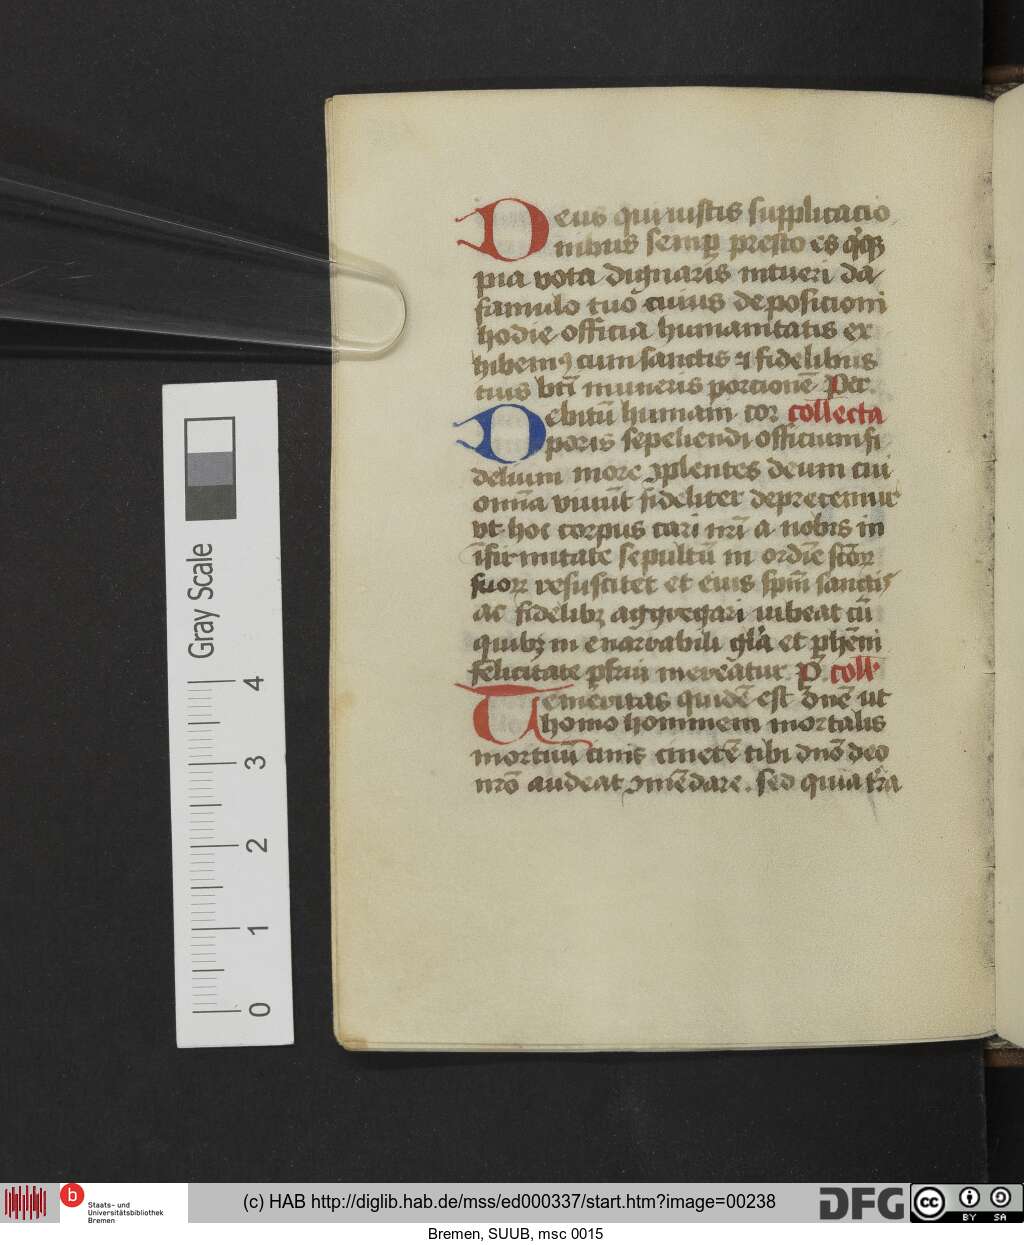 Deus qui iustis supplicacio
nibus semp presto es q̇q̇
pia vota dignaris intueri da
famulo tuo cuius deposicioni
hodie officia humanitatis ex
hibemꝯ cum sanctis ⁊ fidelibus
tuis bt̄i muneris porcionē Per
Debitū humani cor collecta
poris sepeliendi officium fi
delium more ꝯplentes deum cui
omīa viuūt fideliter deprecemur
vt hoc corpus cari nr̄i a nobis in
īfirmitate sepultū in ordīe sc̄toꝝ
suoꝝ resuscitet et eius spm̄ sanctis
ac fidelibꝫ aggregari iubeat cū
quibꝫ in enarrabili gl̄a et phēni
felicitate pfrui mereātur P̄ coll
Temeritas quidē est dn̄e ut
homo hominem mortalis
mortuū cinis cinerē tibi dn̄o deo
nr̄o audeat ꝯmēdare. sed quia tr̄a
Gray Scale
4
3
2
1
0
b
Staats- und
Universitätsbibliothek
Bremen
(c) HAB http://diglib.hab.de/mss/ed000337/start.htm?image=00238
DFG
cc
BY SA
Bremen, SUUB, msc 0015